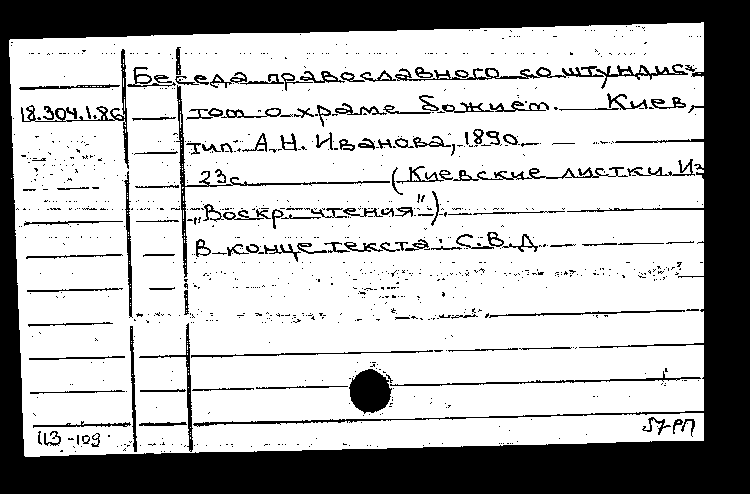 Беседа православного со штундис-
18.304.1.86 том о храме божием. Киев,
тип. А.Н. Иванова, 1890.
23с. (Киевские листки. Из
„Воскр. чтения").
В конце текста: С.В.Д.
113-109 57-РП